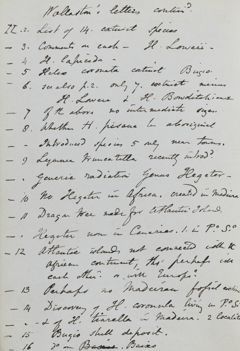 Wollaston's letters contin.d
p. 2. List of 14 extinct species
— 3 Comments on each — H. Lowei
— 4 H. lapicida —
— 5 Helix coronula extinct Bugio
— 6 see also p. 2. only, 7, extinct minus
H. Lowei & H. Bowdichiana
— 7 of the above no intermediate sizes
— 8 Whether H. pisana be aboriginal
— Introduced species 5 only near towns.
— 9 Lymnea truncatula recently introd.
— Generic radiation Genus Hegeter —
— 10 No Hegeter in Africa. created in Madeira
— 11 Dragon tree made for Atlantic Island.
— Hegeter now in Canaries. 1 in P.o S.o
— 12 Atlantic islands not connected with the
African continent, tho' perhaps with
each other or with Europe
— 13 Perhaps no Madeiran fossil
— 14 Discovery of H. coronula living in P.o S.o
— & of H. tiarella in Madeira. 2 localities
— 15 Bugio shell deposit.
— 16 do on Bugio